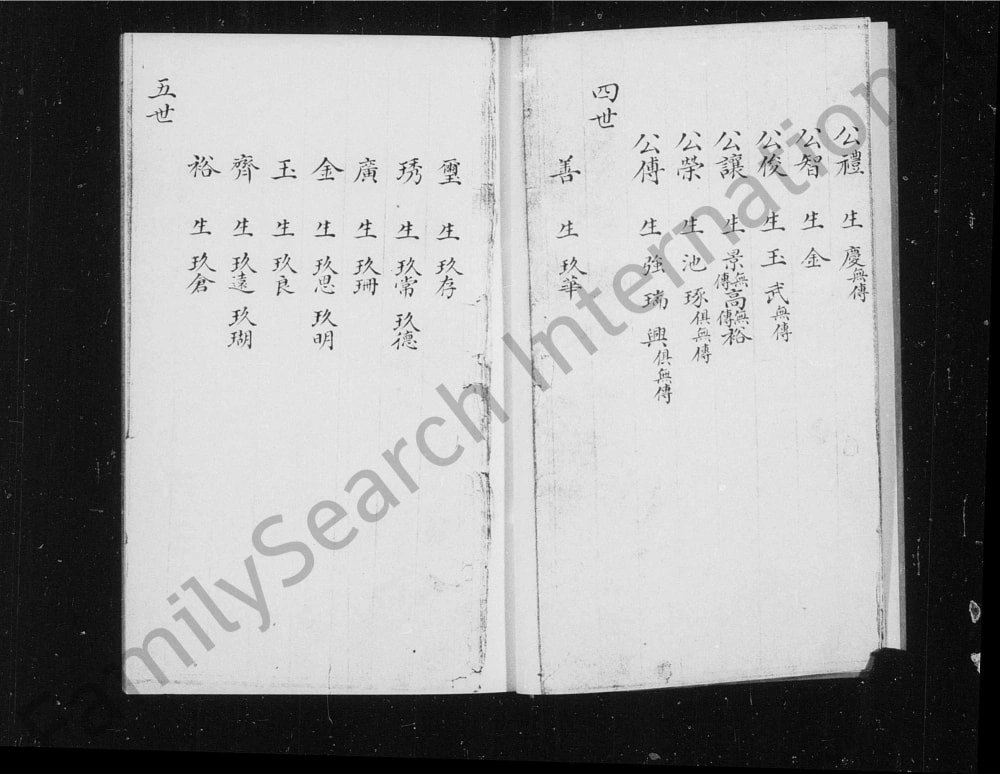 公禮 生 慶無傳
公智 生 金
公俊 生 玉 武無傳
公讓 生 景無傳高無傳裕
公榮 生 池 琢俱無傳
公傅 生 強 瑞 興俱無傳
四世
善 生 玖華
璽 生 玖存
琇 生 玖常 玖德
廣 生 玖珊
金 生 玖思 玖明
玉 生 玖良
齊 生 玖遠 玖瑚
裕 生 玖倉
五世
FamilySearch International